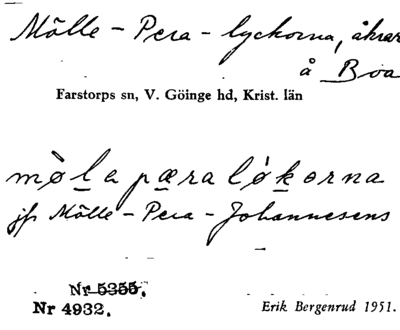 Mölle-Pera-lyckorna, åkrar
å Boa
Farstorps sn, V. Göinge hd, Krist. län
mø̀la pæraløkorna
jfr Mölle-Pera-Johannesens
Nr 5355.
Nr 4932.
Erik Bergenrud 1951.